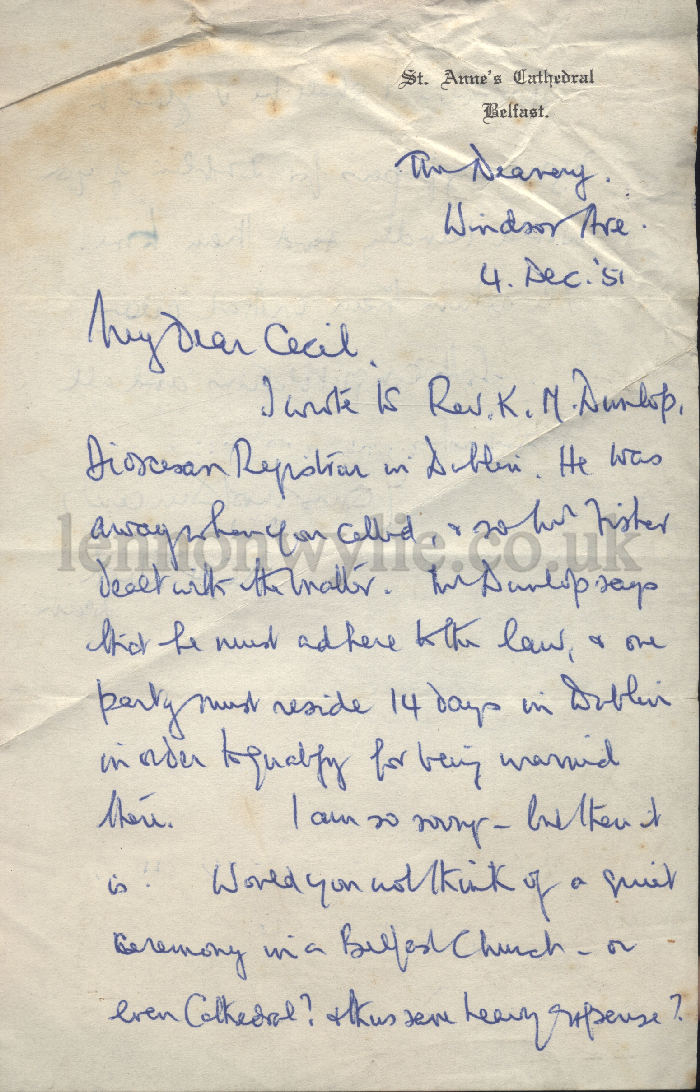 St. Anne's Cathedral
Belfast.
The Deanery.
Windsor Ave.
4. Dec. '51
My Dear Cecil,
I wrote to Rev. K. M. Dunlop,
Diocesan Registrar in Dublin. He was
away when you called & so Mr Fisher
dealt with the matter. Mr Dunlop says
that he must adhere to the law, & one
party must reside 14 days in Dublin
in order to qualify for being married
there. I am so sorry – but then it
is. Would you not think of a quiet
ceremony in a Belfast Church – or
even Cathedral? & thus save heavy expense?
lennonwylie.co.uk